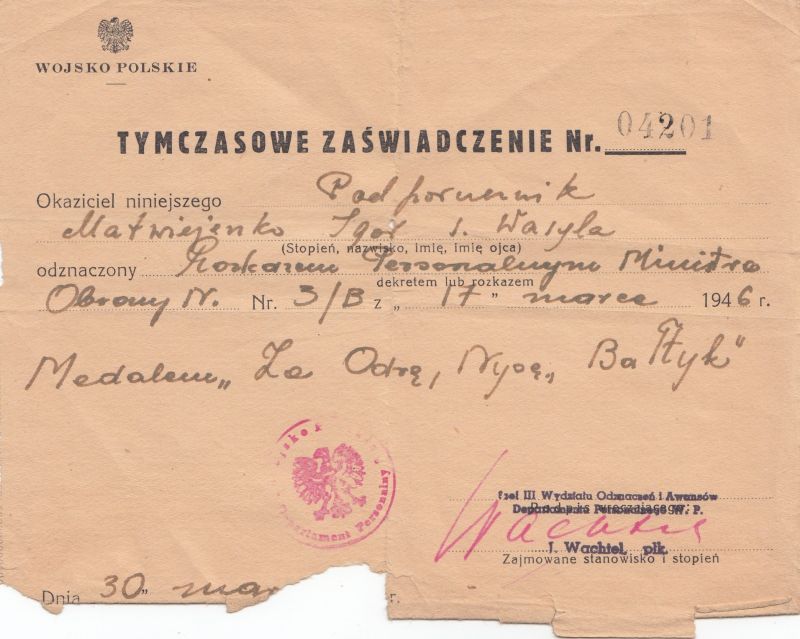 WOJSKO POLSKIE
TYMCZASOWE ZAŚWIADCZENIE Nr. 04201
Okaziciel niniejszego Podporucznik
Matwiejenko Igor s. Wasyla
(Stopień, nazwisko, imię, imię ojca)
odznaczony Rozkazem Personalnym Ministra
dekretem lub rozkazem
Obrony N. Nr. 3/B z „ 17 " marca 1946 r.
Medalem „Za Odrę, Nysę, Bałtyk"
Departament Personalny
Szef III Wydziału Odznaczeń i Awansów
Departamentu Personalnego W. P.
Wachtel
J. Wachtel, płk.
Zajmowane stanowisko i stopień
Dnia 30 " mar r.